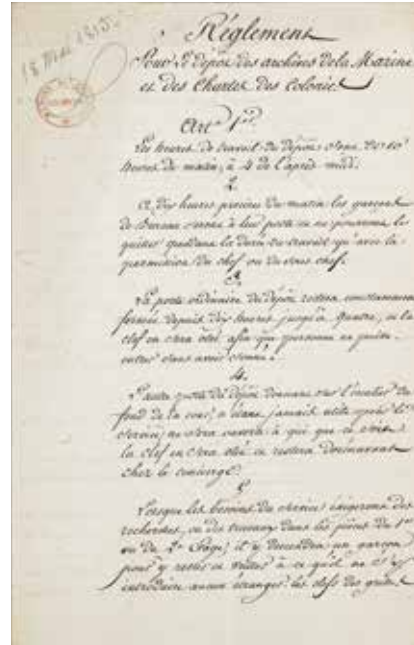 18 Mai 1815.
Réglement
Pour le dépôt des archives de la Marine
et des Chartes des Colonies
Art. 1er
Les heures de travail du dépôt sont de 10
heures du matin, à 4 de l'après midi.
2.
A dix heures précises du matin les garçons
de Bureau seront à leur poste et ne pourront les
quitter pendant la durée du travail qu'avec la
permission du chef ou du sous chef.
3.
La porte ordinaire du dépôt restera constamment
fermée depuis dix heures jusqu'à quatre, et la
clef en sera ôtée, afin que personne ne puisse
entrer sans avoir sonné.
4.
L'autre porte du dépôt donnant sur l'escalier du
fond de la cour, n'étant jamais utile pour le
service, ne sera ouverte à qui que ce soit.
la clef en sera ôtée et restera dorénavant
chez le concierge.
5
Lorsque les besoins du service exigeront des
recherches, ou des travaux dans les pièces du 1er
ou du 2e étage, il y descendra un garçon
pour y rester et veiller à ce qu'il ne s'y
introduise aucun étranger. les clefs des